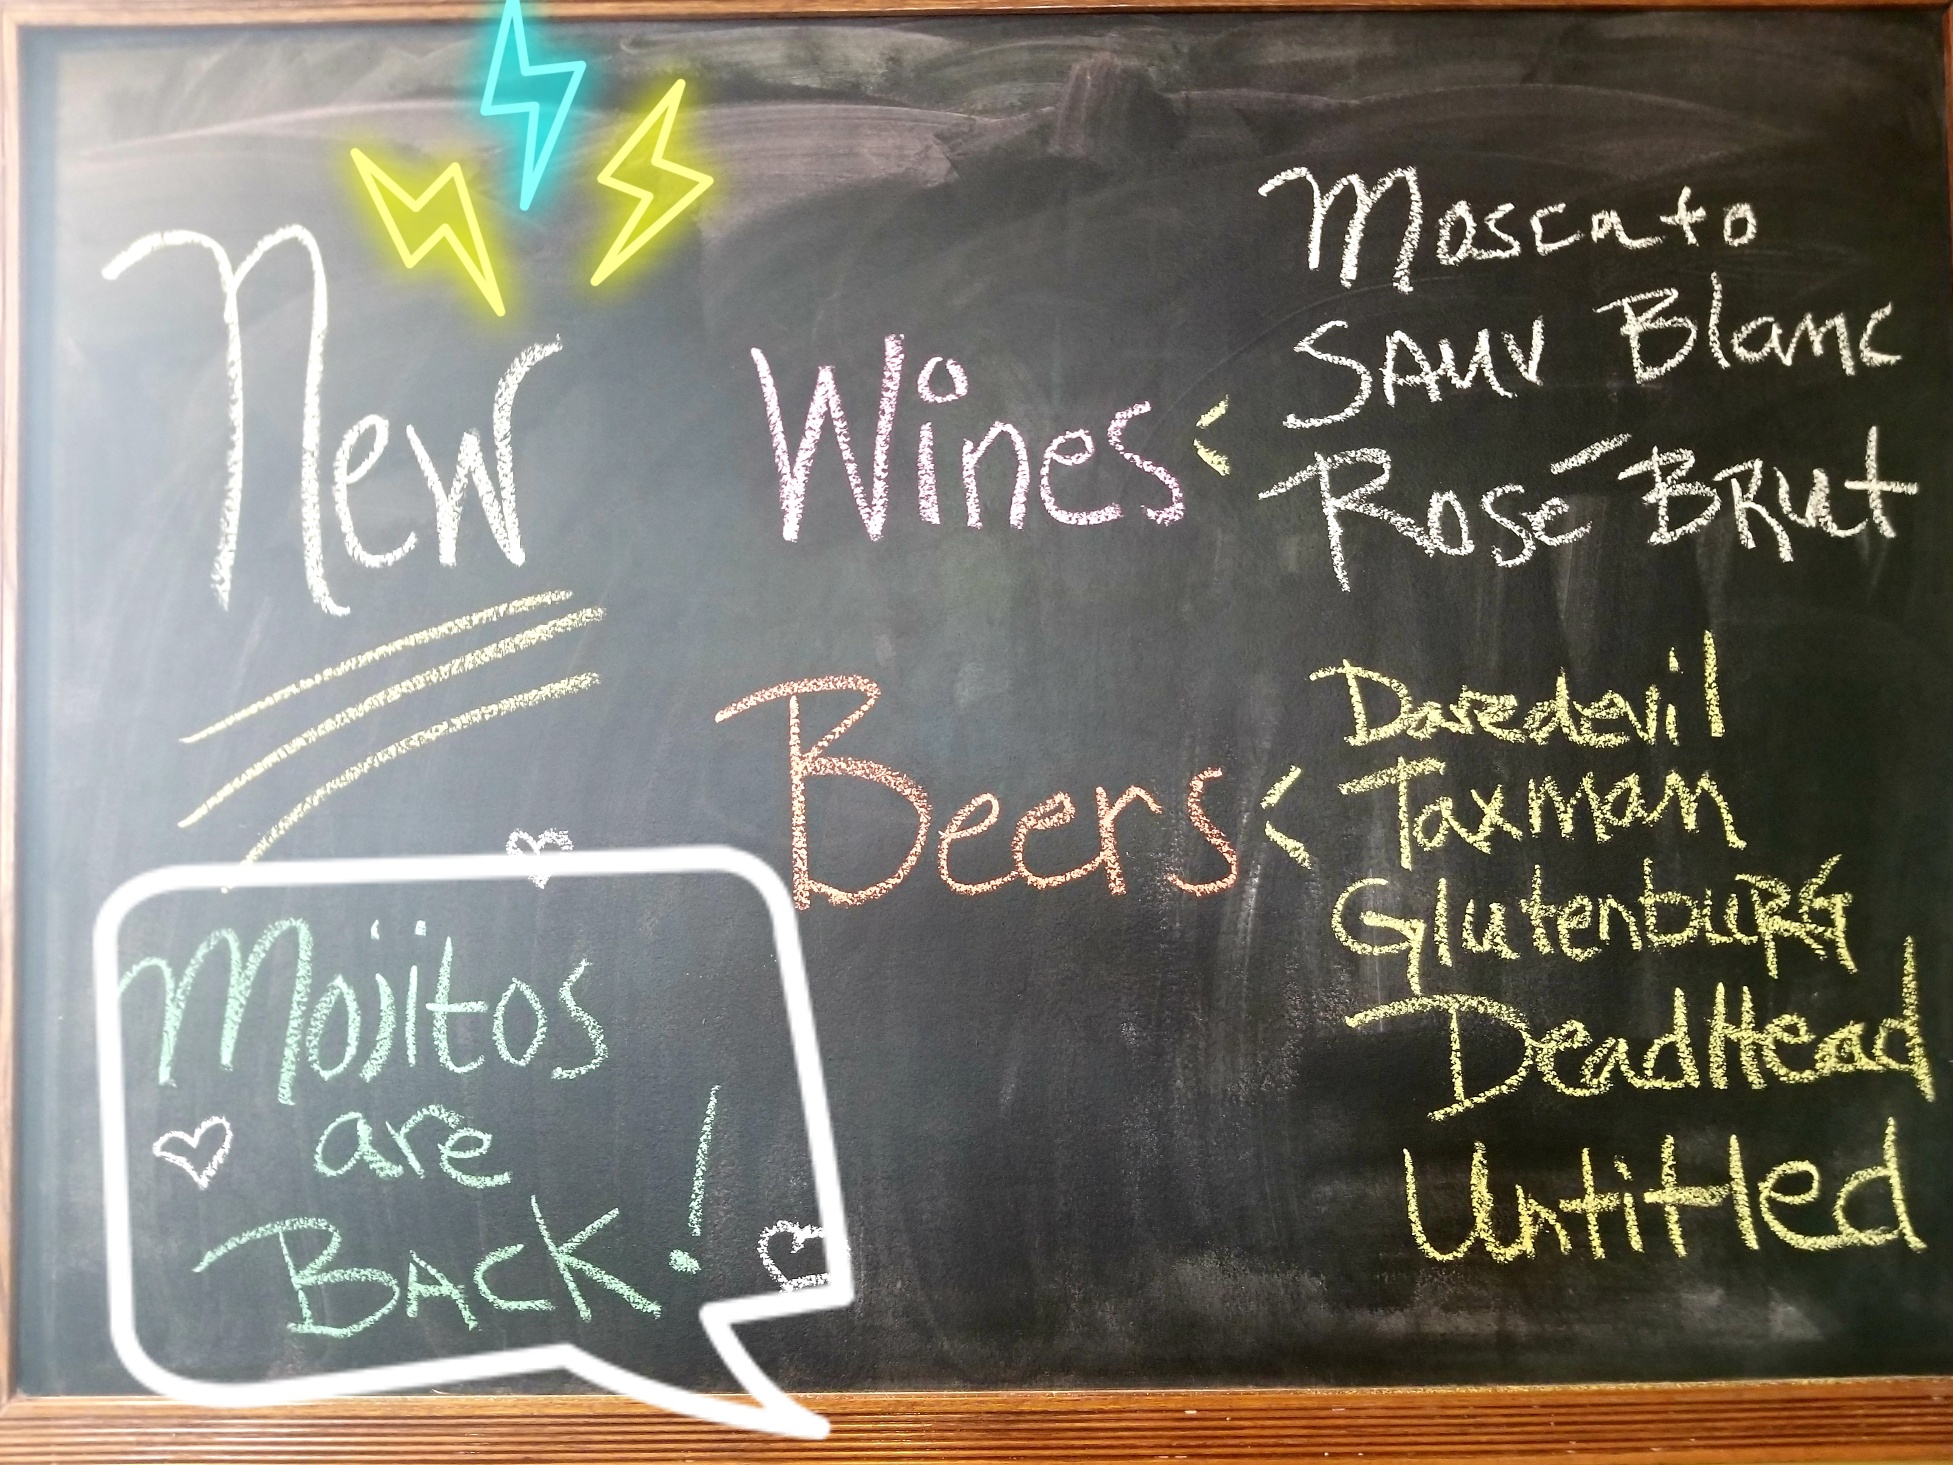 New
Wines
Moscato
SAuv Blanc
Rosé BRut
Beers
Daredevil
Taxman
GlutenbuRG
DeadHead
Untitled
Mojitos
are
BACK!